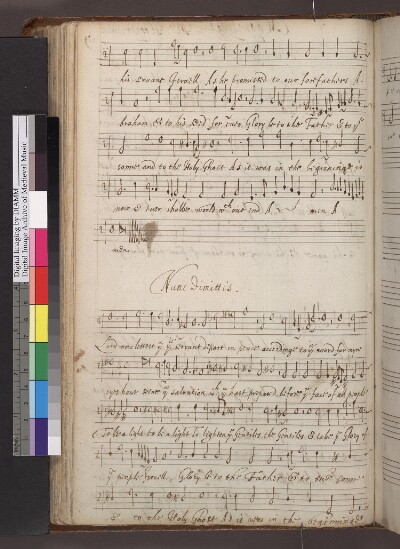 his servant Israell As he promised to our forefathers A-
braham, & to his seed for ever Glory be to the Father & to yᵉ
sonne and to the Holy Ghost As it was in the beginning & is
now & ever shalbe world wᵗʰ out end A men A
men.
Nunc Dimittis.
Lord now lettest yᵘ yʸ servant depart in peace according to yʸ word for myne
eyes have seene yʸ salvation wᶜʰ yᵘ hast prepar'd before yᵉ face of all people
To be a light to be a light to lighten yᵉ Gentiles, the Gentiles, & to be yᵉ Glory of
yʸ people Israell. Glory be to the Father & to the sonne
& to the Holy Ghost As it was in the beginning &
Digital Imaging by DIAMM
Digital Image Archive of Medieval Music